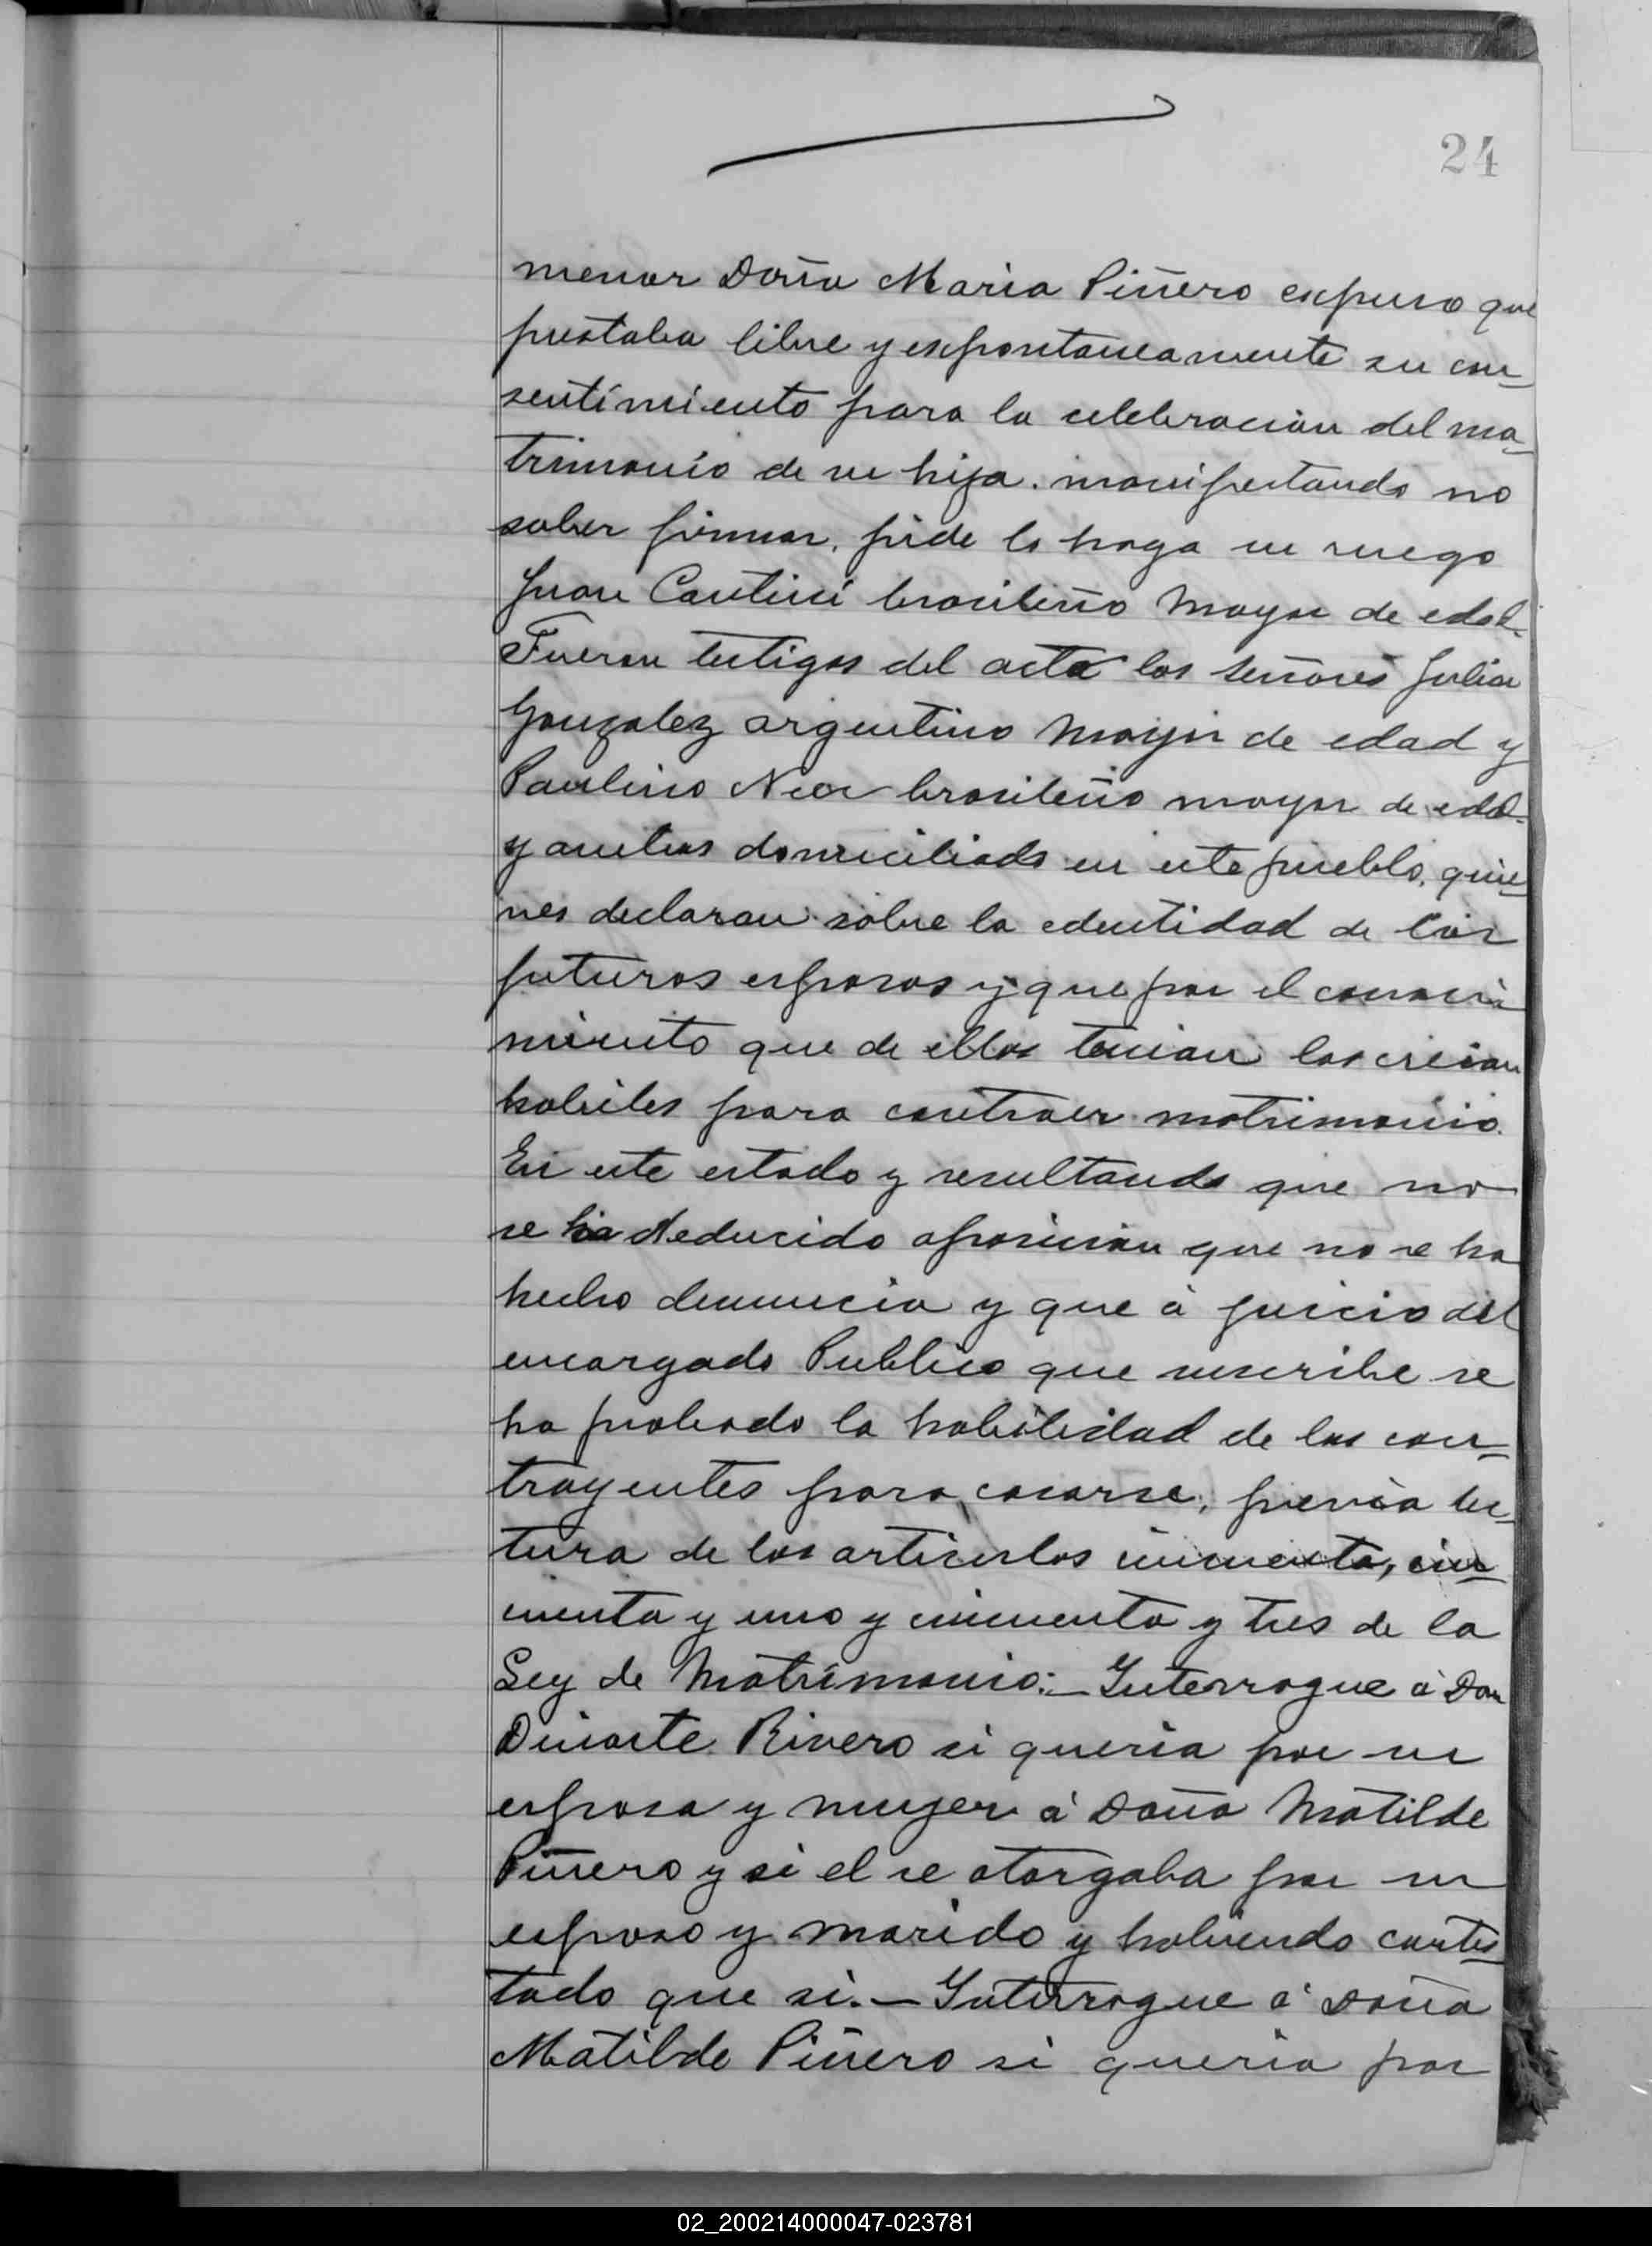 24
menor Doña Maria Piñero expuso que
prestaba libre y espontaneamente su con_
sentimiento para la celebracion del ma_
trimonio de su hija. manifestando no
saber firmar, pide lo haga su ruego
Juan Cantini brasileño Mayor de edad.
Fueron testigos del acta los señores Julian
Gonzalez argentino Mayor de edad y
Paulino brasileño mayor de edad
y ambos domiciliado en este pueblo, quie_
nes declaran sobre la edentidad de los
futuros esposos y que por el conoci_
miento que de ellos tenian los creian
habiles para contraer matrimonio.
En este estado y resultando que no
se ha deducido oposicion que no se ha
hecho denuncia y que á juicio del
encargado Publico que suscribe se
ha probado la habilidad de los con_
trayentes para casarse, previa lec_
tura de los articulos cincuenta, cin_
cuenta y uno y cincuenta y tres de la
Ley de Matrimonio:_ Interrogue á Don
Duarte Rivero si queria por su
esposa y muger á Doña Matilde
Piñero y si el se otorgaba por su
esposo y marido y habiendo contes_
tado que si._ Interrogue á Doña
Matilde Piñero si queria por
02_200214000047-023781